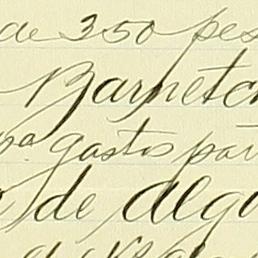 de 350 pes
Barnetc
pa. gastos par
de algu